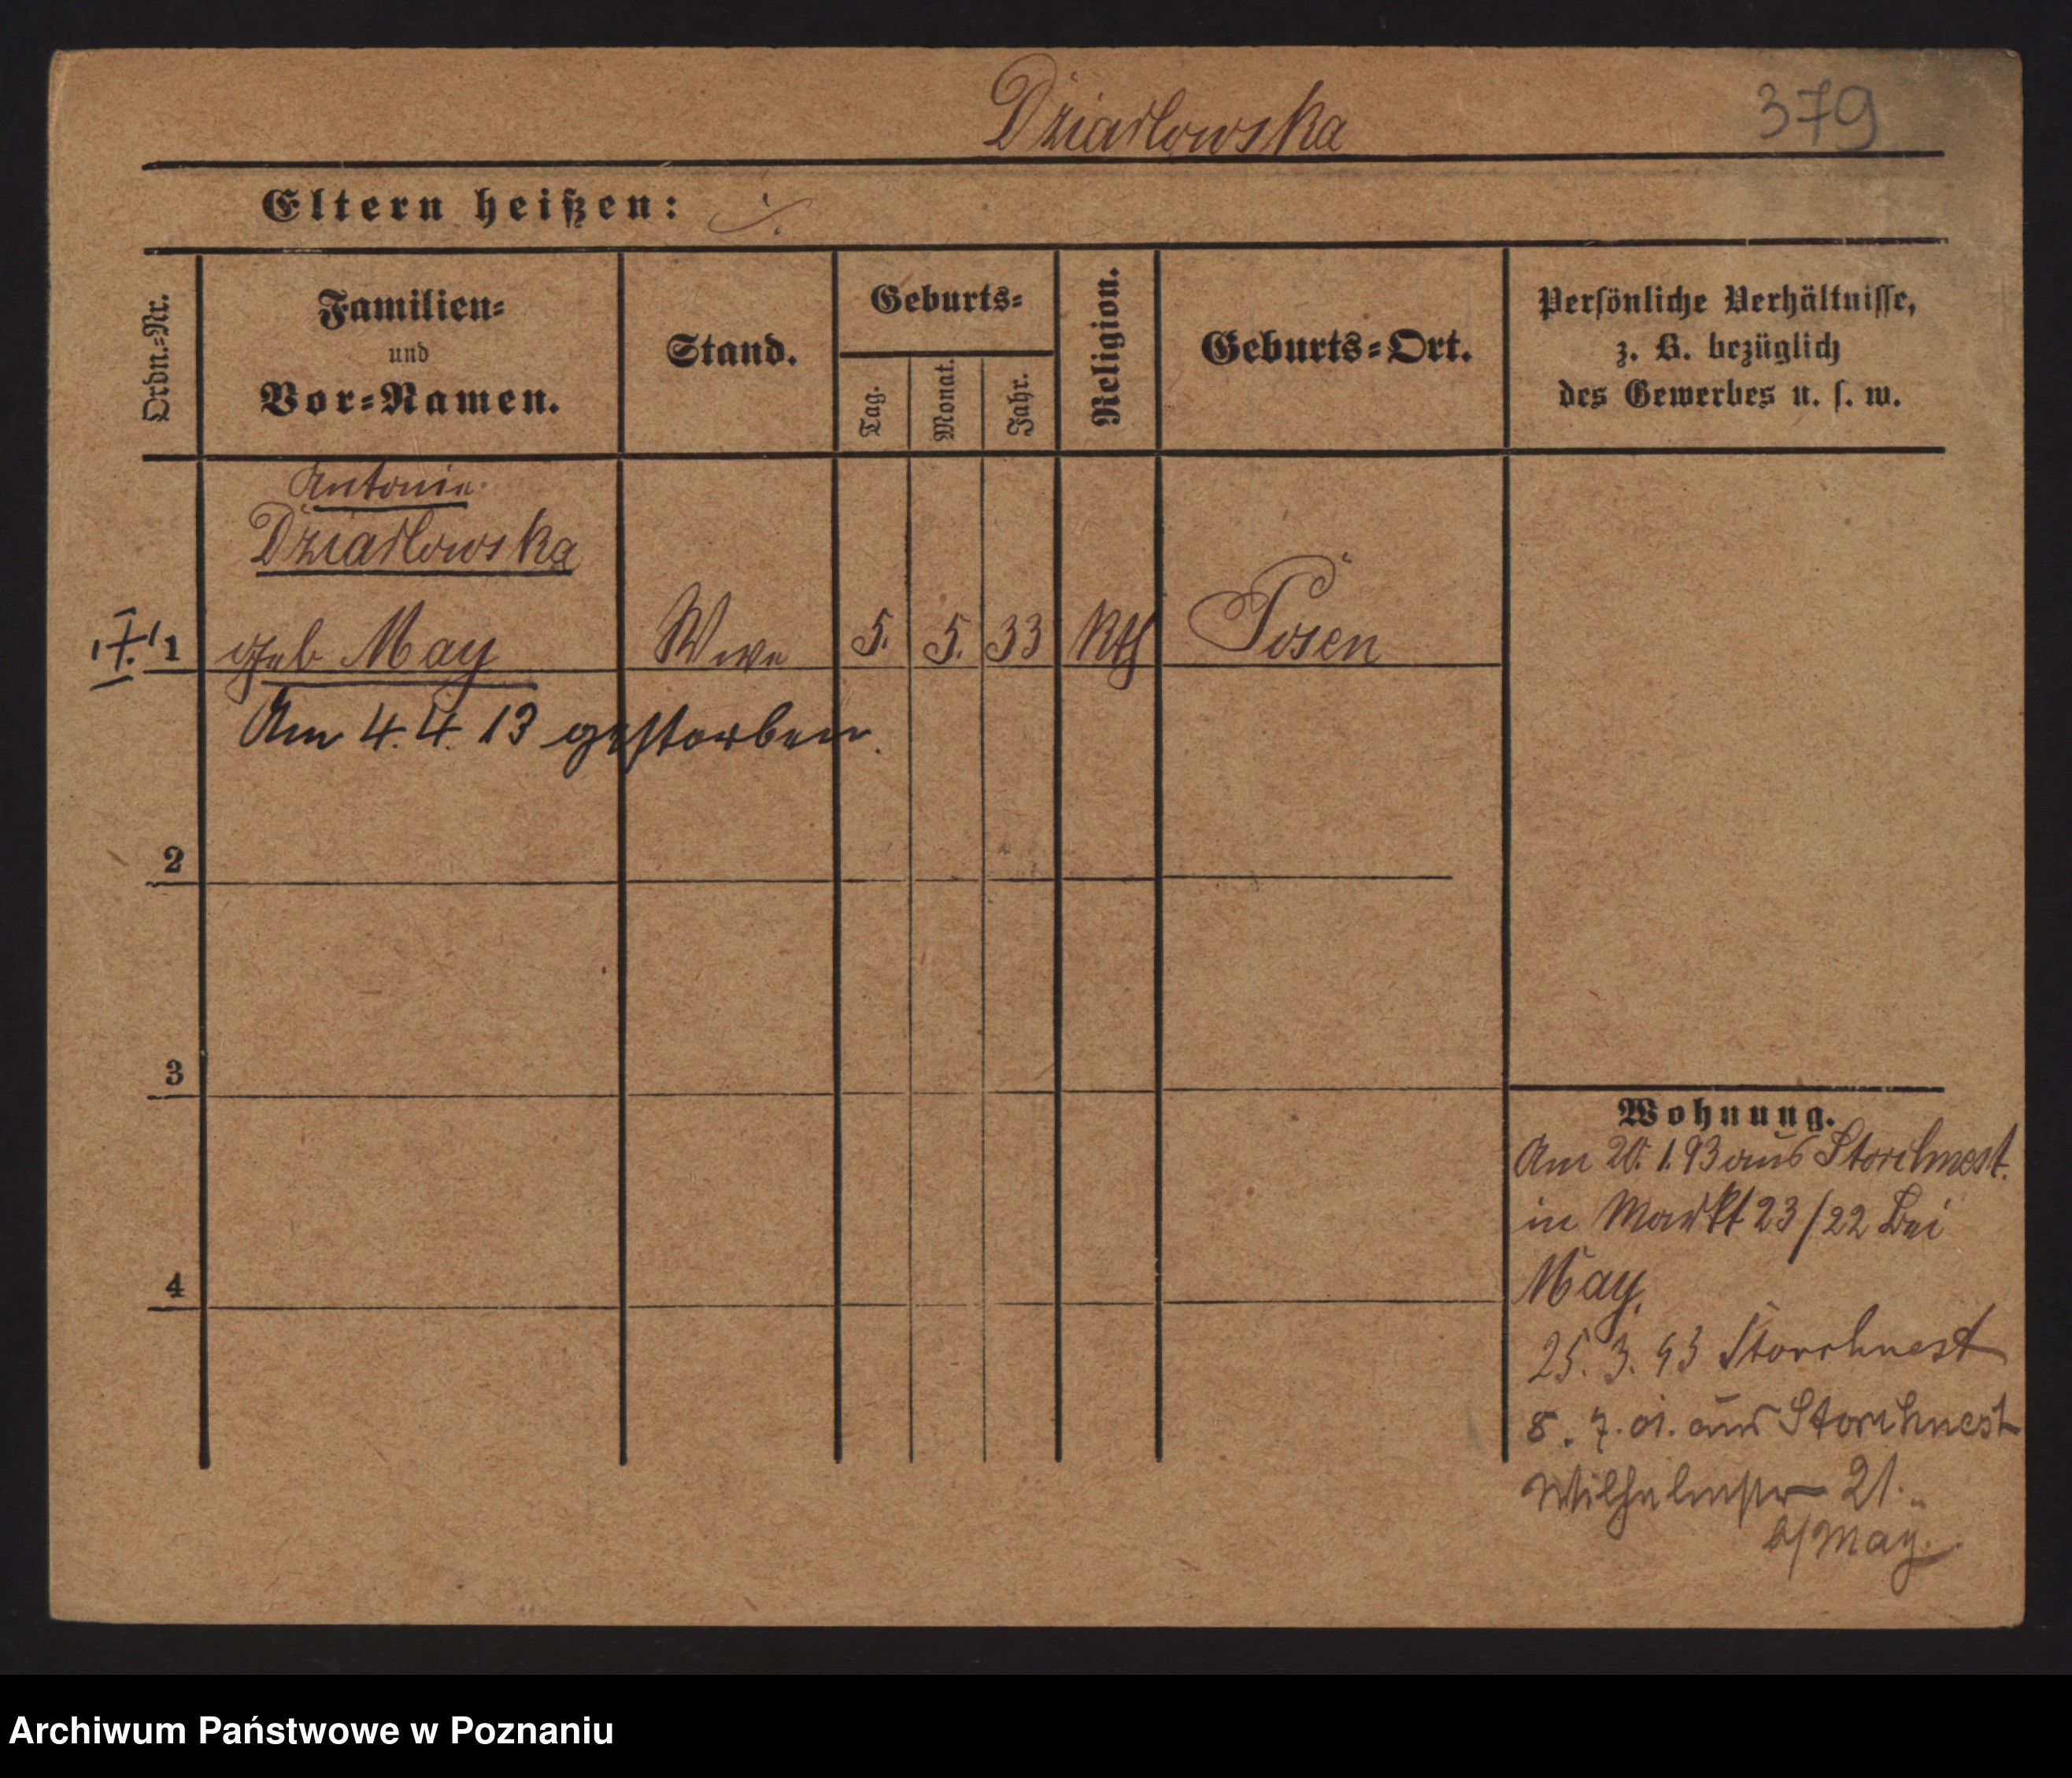 Dziadlowska
379
Eltern heißen: ./.
Ordn.-Nr.
Familien-
und
Vor-Namen.
Stand.
Geburts-
Tag.
Monat.
Jahr.
Religion.
Geburts-Ort.
Persönliche Verhältnisse,
z. B. bezüglich
des Gewerbes u. s. w.
Antonie
Dziadlowska
1 geb May Wwe 5. 5. 33 Kth Posen
Am 4. 4. 13 gestorben.
2
3
4
Wohnung.
Am 20. 1. 93 aus Storchnest.
in Markt 23/22 bei
May.
25. 3. 93 Storchnest
8. 7. 01. aus Storchnest
Wilhelmstr 21.
b/May.
Archiwum Państwowe w Poznaniu